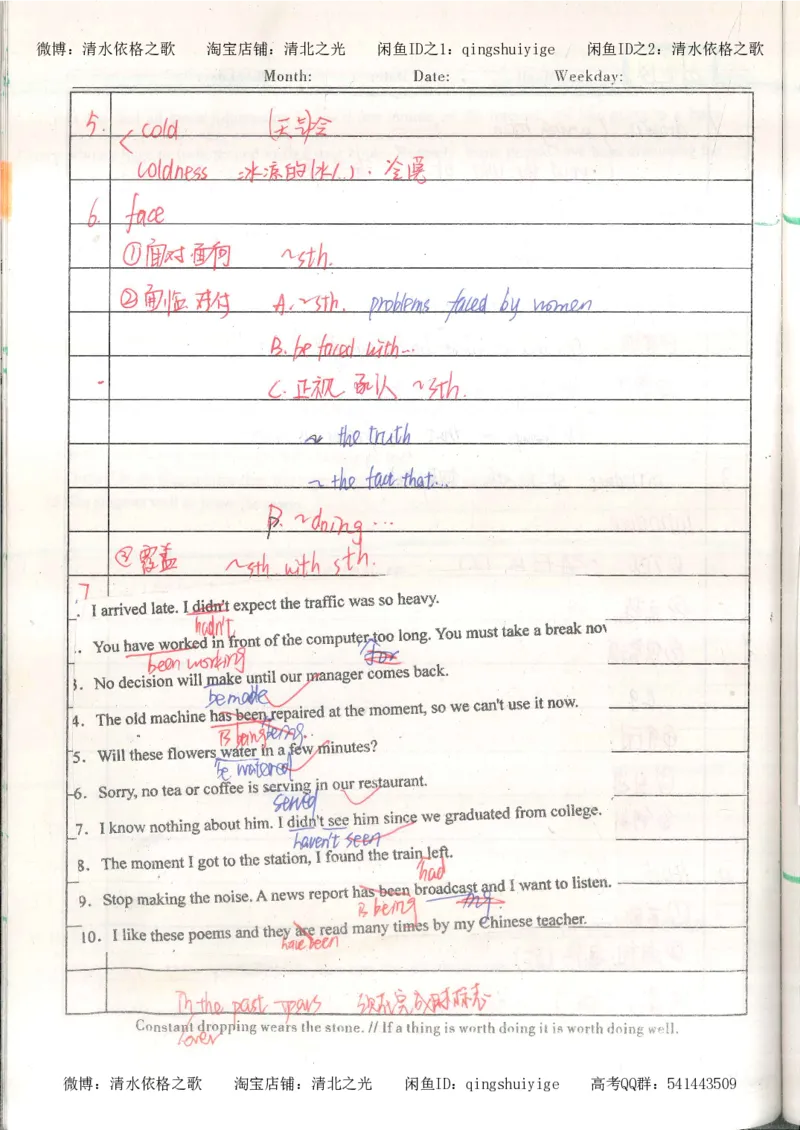 微博：清水依格之歌 淘宝店铺：清北之光 闲鱼ID之1：qingshuiyige 闲鱼ID之2：清水依格之歌
Month: Date: Weekday:
5. cold 天气冷
coldness 冰凉的(水).
6. face
①面对面向 ~sth.
②面临对付 A. ~sth. problems faced by women
B. be faced with...
C. 正视 承认 ~sth.
~ the truth
~ the fact that...
D. ~doing...
③覆盖 ~sth. with sth.
7
. I arrived late. I didn't expect the traffic was so heavy.
hadn't
. You have worked in front of the computer too long. You must take a break now
been working for
3. No decision will make until our manager comes back.
be made
4. The old machine has been repaired at the moment, so we can't use it now.
is being being
5. Will these flowers water in a few minutes?
be watered
6. Sorry, no tea or coffee is serving in our restaurant.
served
7. I know nothing about him. I didn't see him since we graduated from college.
haven't seen
8. The moment I got to the station, I found the train left.
had
9. Stop making the noise. A news report has been broadcast and I want to listen.
is being ing
10. I like these poems and they are read many times by my Chinese teacher.
have been
In the past years 须为完成时标志
Constant dropping wears the stone. // If a thing is worth doing it is worth doing well.
(over
微博：清水依格之歌 淘宝店铺：清北之光 闲鱼ID：qingshuiyige 高考QQ群：541443509